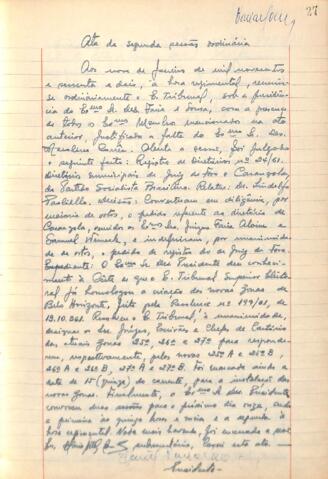 27
Ata da segunda sessão ordinária
Aos nove de Janeiro de mil novecentos
e sessenta e dois, à hora regimental, reuniu-
se ordinariamente o E. Tribunal, sob a presidên-
cia do Exmo S. Des. Faria e Sousa, com a presença
de todos os Exmos Membros mencionados na ata
anterior, justificada a falta do Exmo S. Des.
Aberta a sessão, foi julgado
o seguinte feito: Registro de Diretórios nº 26/61.
Diretórios municipais de Juiz de Fora e Carangola,
do Partido Socialista Brasileiro. Relator: Dr. Lindolfo
Paoliello. Decisão: Converteram em diligência, por
maioria de votos, o pedido referente ao diretório de
Carangola, vencidos os Exmos Srs. Juizes Faria Alvim e
Samuel Werneck, e indeferiram, por unanimidade
de votos, o pedido de registro do de Juiz de Fora.
Expediente: O Exmo S. Des. Presidente deu conheci-
mento à Corte de que o E. Tribunal Superior Eleito-
ral já homologou a criação das novas Zonas de
Belo Horizonte, feita pela Resolução nº 199/61, de
19.10.961. Resolveu o E. Tribunal, à unanimidade,
designar os Srs. Juizes, Escrivães e Chefes de Cartório
das atuais Zonas 25ª, 26ª e 27ª para responde-
rem, respectivamente, pelas novas 25ª A e 25ª B,
26ª A e 26ª B, 27ª A e 27ª B. Foi marcada ainda a
data de 15 (quinze) do corrente, para a instalação das
novas Zonas. Finalmente, o Exmo S. Des. Presidente
convocou duas sessões para o próximo dia onze, sendo
a primeira às quinze horas e meia e a segunda à
hora regimental. Nada mais havendo, foi encerrada a sessão.
Eu, secretário, lavrei esta ata.
Presidente.